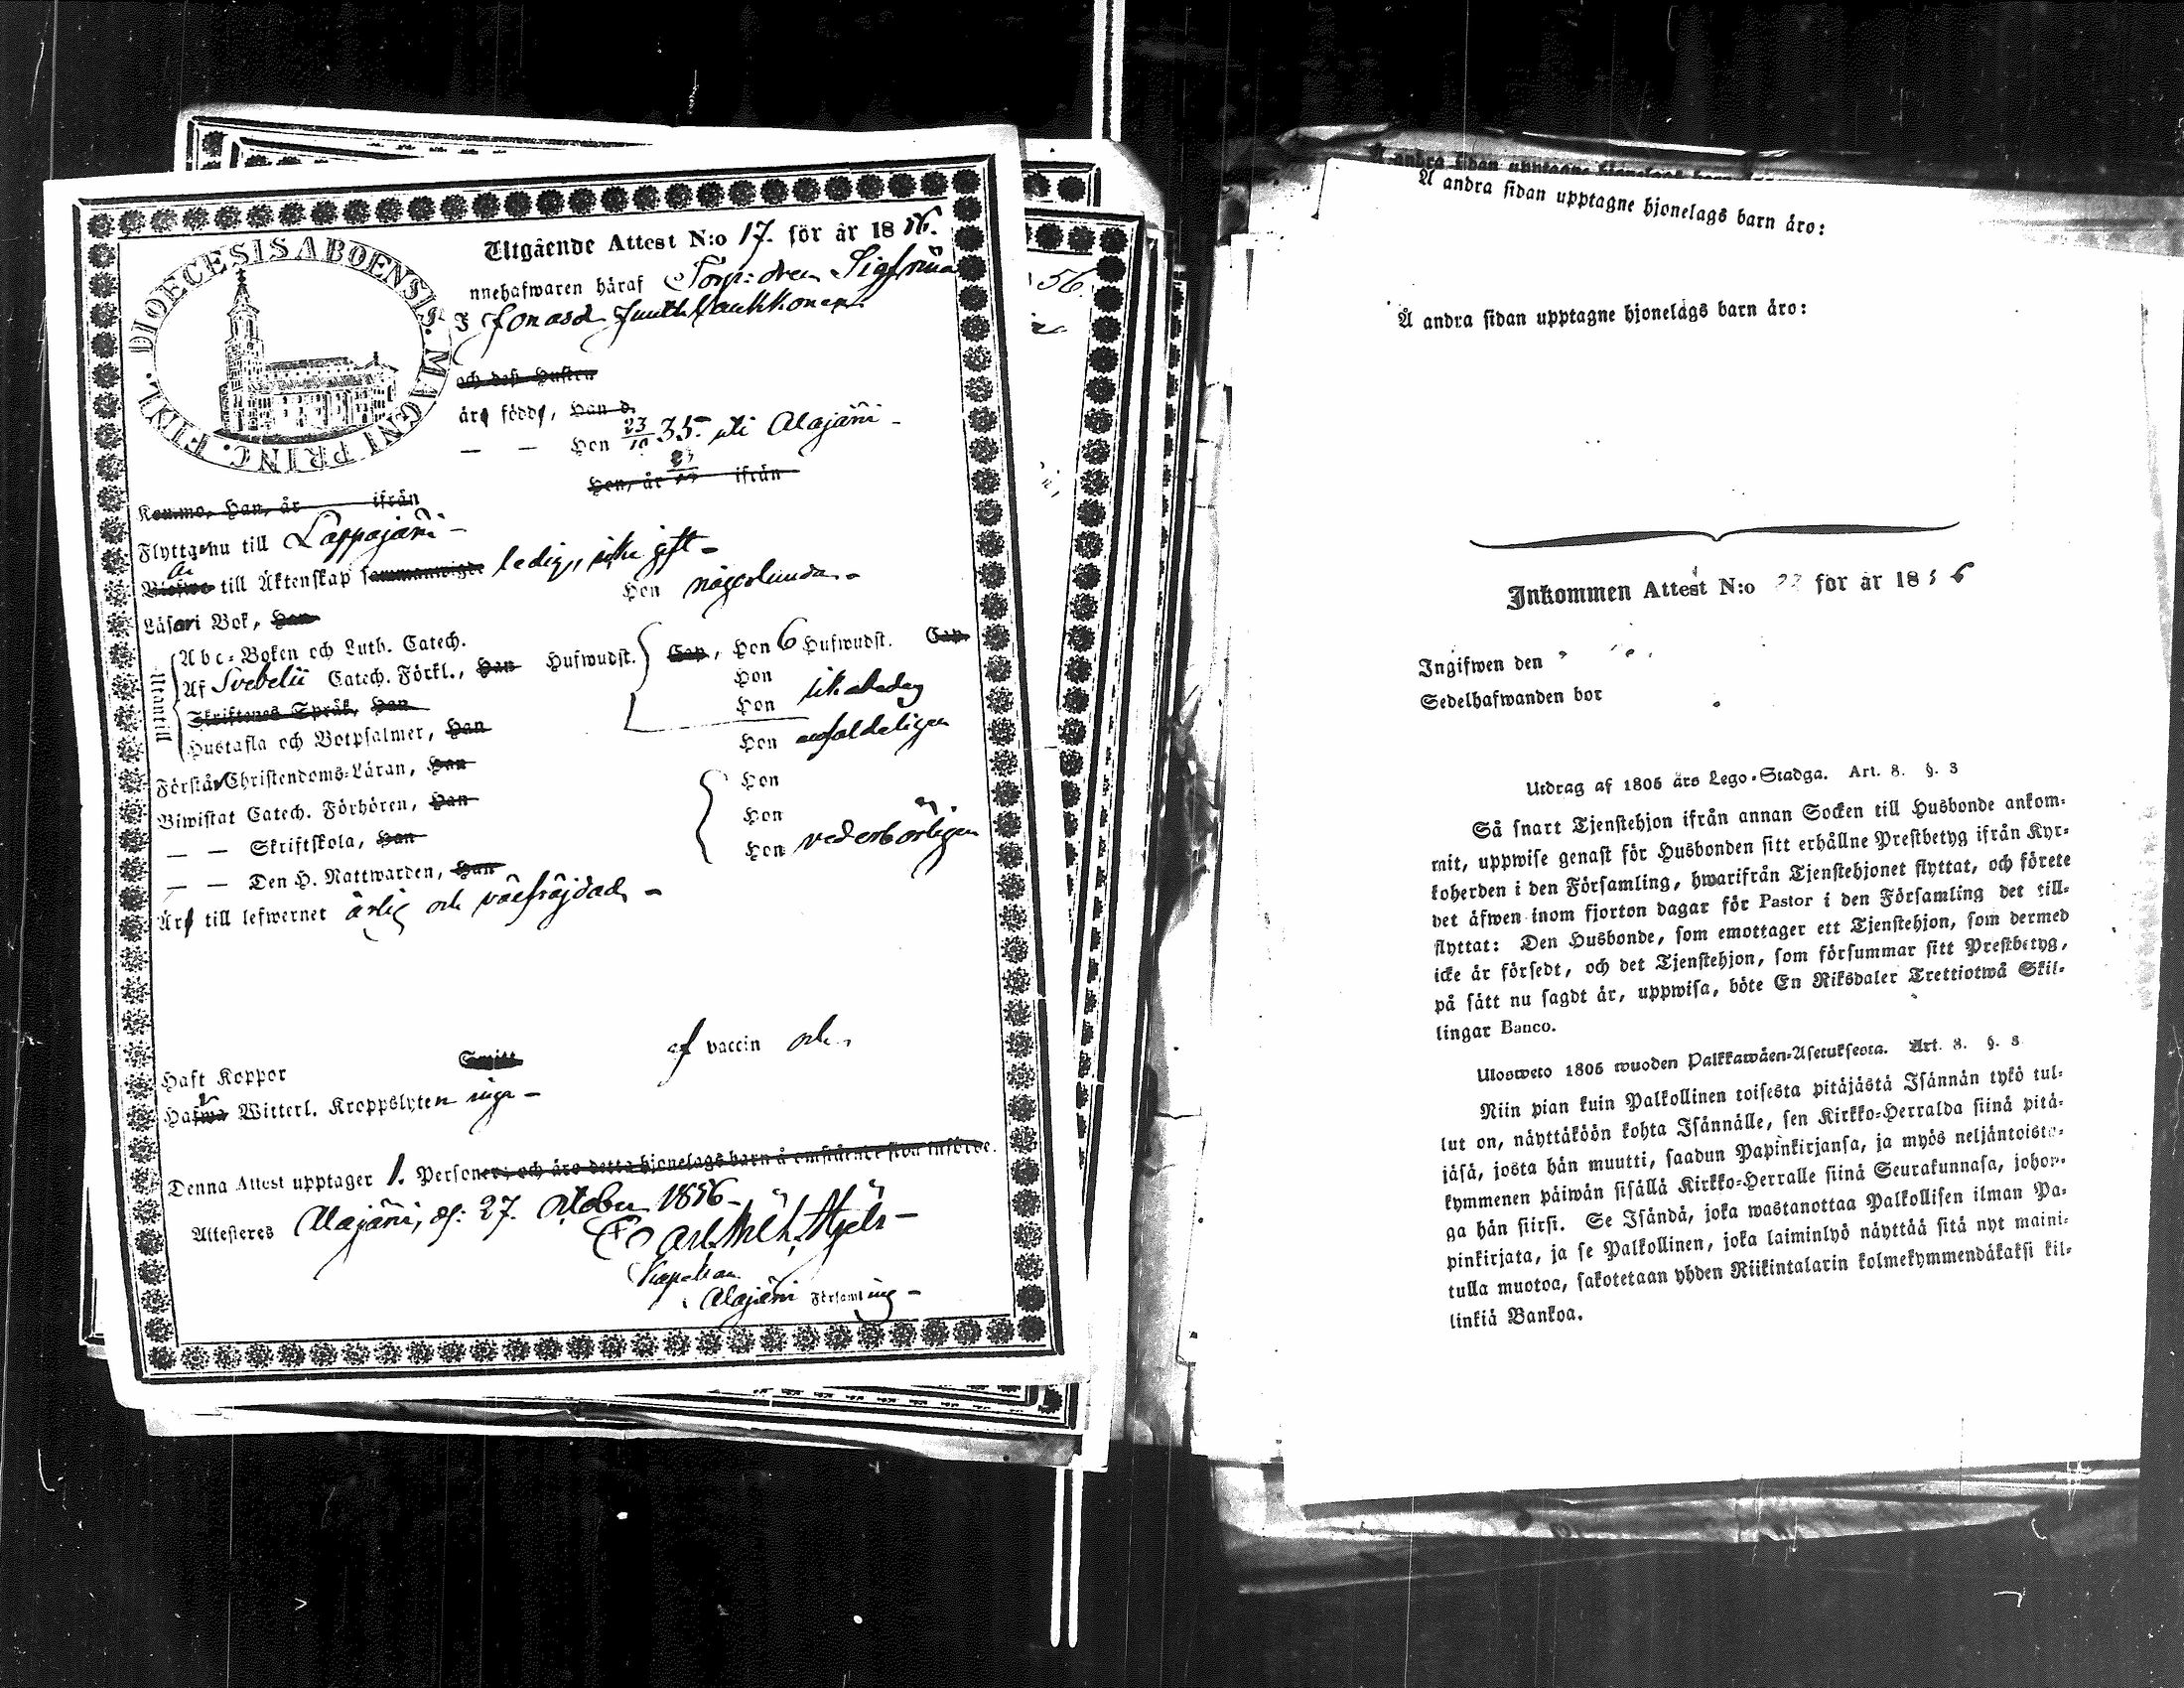 DIOECESIS ABOENSIS. MAGNI PRINC. FINL.
Utgående Attest N:o 17. för år 1856.
Innehafwaren häraf Torp: dren Sigfrid
Jonasd.
och dess Hustru
äro födde, Han d.
— — Hon 23/10 35. uti Alajärvi –
Kommo, Han, år ifrån
Hon, år ifrån
Flyttar nu till Lappajärvi –
är till Äktenskap sammanwigde ledig, icke gift –
Läser i Bok, Han Hon någorlunda –
Utantill
Abc-Boken och Luth. Catech.
Af Svebelii Catech. Förkl., Han Hufwudst. Cap, Hon 6 Hufwudst. Cap.
Skriftenes Språk, Han Hon
Hustafla och Botpsalmer, Han Hon likaledes
Förstår Christendoms-Läran, Han Hon enfaldeligen
Biwistat Catech. Förhören, Han Hon
— — Skriftskola, Han Hon
— — Den H. Nattwarden, Han Hon vederbörligen
Äro till lefwernet ärlig och välfräjdad –
Haft Koppor af vaccin och
Hafwa Witterl. Kroppslyten inga –
Denna Attest upptager 1. Personer, och äro detta hjonelags barn å omstående sida införde.
Attesteras Alajärvi, d: 27. October 1856 –
Kapellan
i Alajärvi Församling –
56.
Å andra sidan upptagne hjonelags barn äro:
Å andra sidan upptagne hjonelags barn äro:
Å andra sidan upptagne hjonelags barn äro:
Inkommen Attest N:o 22 för år 1856
Ingifwen den
Sedelhafwanden bor
Utdrag af 1805 års Lego-Stadga. Art. 8. §. 3
Så snart Tjenstehjon ifrån annan Socken till Husbonde ankom-
mit, uppwise genast för Husbonden sitt erhållne Prestbetyg ifrån Kyr-
koherden i den Församling, hwarifrån Tjenstehjonet flyttat, och förete
det äfwen inom fjorton dagar för Pastor i den Församling det till-
flyttat: Den Husbonde, som emottager ett Tjenstehjon, som dermed
icke är försedt, och det Tjenstehjon, som försummar sitt Prestbetyg,
på sätt nu sagdt är, uppwisa, böte En Riksdaler Trettiotwå Skil-
lingar Banco.
Ulosweto 1805 wuoden Palkkawäen-Asetuksesta. Art. 8. §. 3
Niin pian kuin Palkollinen toisesta pitäjästä Isännän tykö tul-
lut on, näyttäköön kohta Isännälle, sen Kirkko-Herralda siinä pitä-
jäsä, josta hän muutti, saadun Papinkirjansa, ja myös neljäntoista-
kymmenen päiwän sisällä Kirkko-Herralle siinä Seurakunnasa, johon-
ga hän siirsi. Se Isändä, joka wastanottaa Palkollisen ilman Pa-
pinkirjata, ja se Palkollinen, joka laiminlyö näyttää sitä nyt maini-
tulla muotoa, sakotetaan yhden Riikintalarin kolmekymmendäkaksi kil-
linkiä Bankoa.